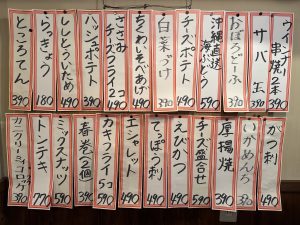 ウインナー串焼2本 390
サバ玉 390
おぼろどーふ 390
沖縄直送海ぶどう 590
チーズポテト 490
白菜づけ 390
ちくわいそべあげ 490
ささみチーズフライ2コ 490
ハッシュポテト 390
ししとういため 490
らっきょう 180
ところてん 390
がつ刺 490
いかめんち 390
厚揚焼 390
チーズ盛合せ 590
えびかつ 490
てっぽう刺 490
エシャレット 490
カキフライ5コ 590
春巻(2個) 390
ミックスナッツ 590
トンテキ 770
カニクリーミィコロッケ 390